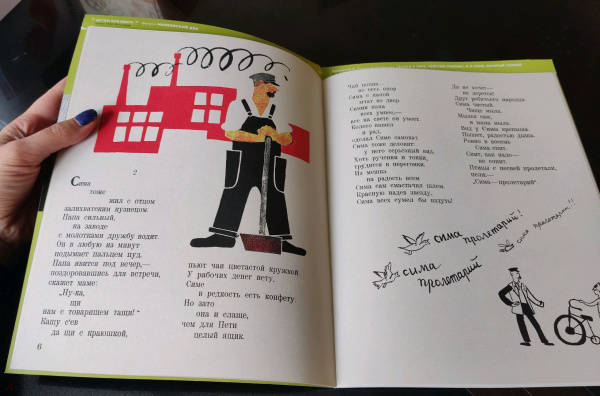 2
Сима
тоже
жил с отцом
залихватским кузнецом.
Папа сильный,
на заводе
с молотками дружбу водят.
Он в любую из минут
подымает пальцем пуд.
Папа явится под вечер,—
поздоровавшись для встречи,
скажет маме:
„Ну-ка,
щи
нам с товарищем тащи!“
Кашу с'ев
да щи с краюшкой,
6
пьют чаи цветастой кружкой.
У рабочих денег нету.
Симе
в редкость есть конфету.
Но зато
она и слаще,
чем для Пети
целый ящик.
Чай попив
во весь опор
Сима с папой
мчат во двор.
Папа
всех умнее,—
все на свете он умеет.
Колесо нашел
и рад,
сделал Симе самокат.
Сима тоже деловит:
у него серьезный вид.
Хоть ручёнки и тонки,
трудятся в перегонки.
Из мешка
на радость всем
Сима сам смастачил шлем.
Красную надев звезду,
Сима всех сумел бы вздуть!
Да не хочет—
не деретея!
Друг ребячьего народца
Сима чистый.
Чаще мыла.
Мылся сам,
и мама мыла.
Вид у Симы крепыша.
Пышет, радостью дыша.
Ровно в восемь
Сима спит.
Спит, как надо—
не сопит.
Птицы с песней пролетали,
пели:
„Сима—пролетарий“
сима пролетарий!
сима пролетарий!!
сима
пролетарий